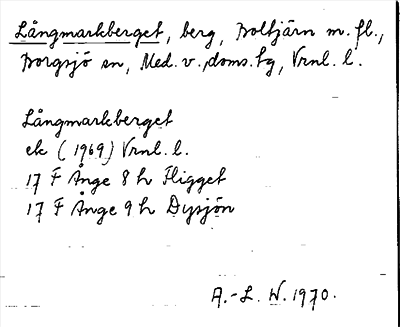 Långmarkberget, berg, Boltjärn m. fl.,
Borgsjö sn, Med. v. doms. hg, Vrnl. l.
Långmarkberget
ek (1969) Vrnl. l.
17 F Ånge 8 h Fligget
17 F Ånge 9 h Dysjön
A.-L. W. 1970.